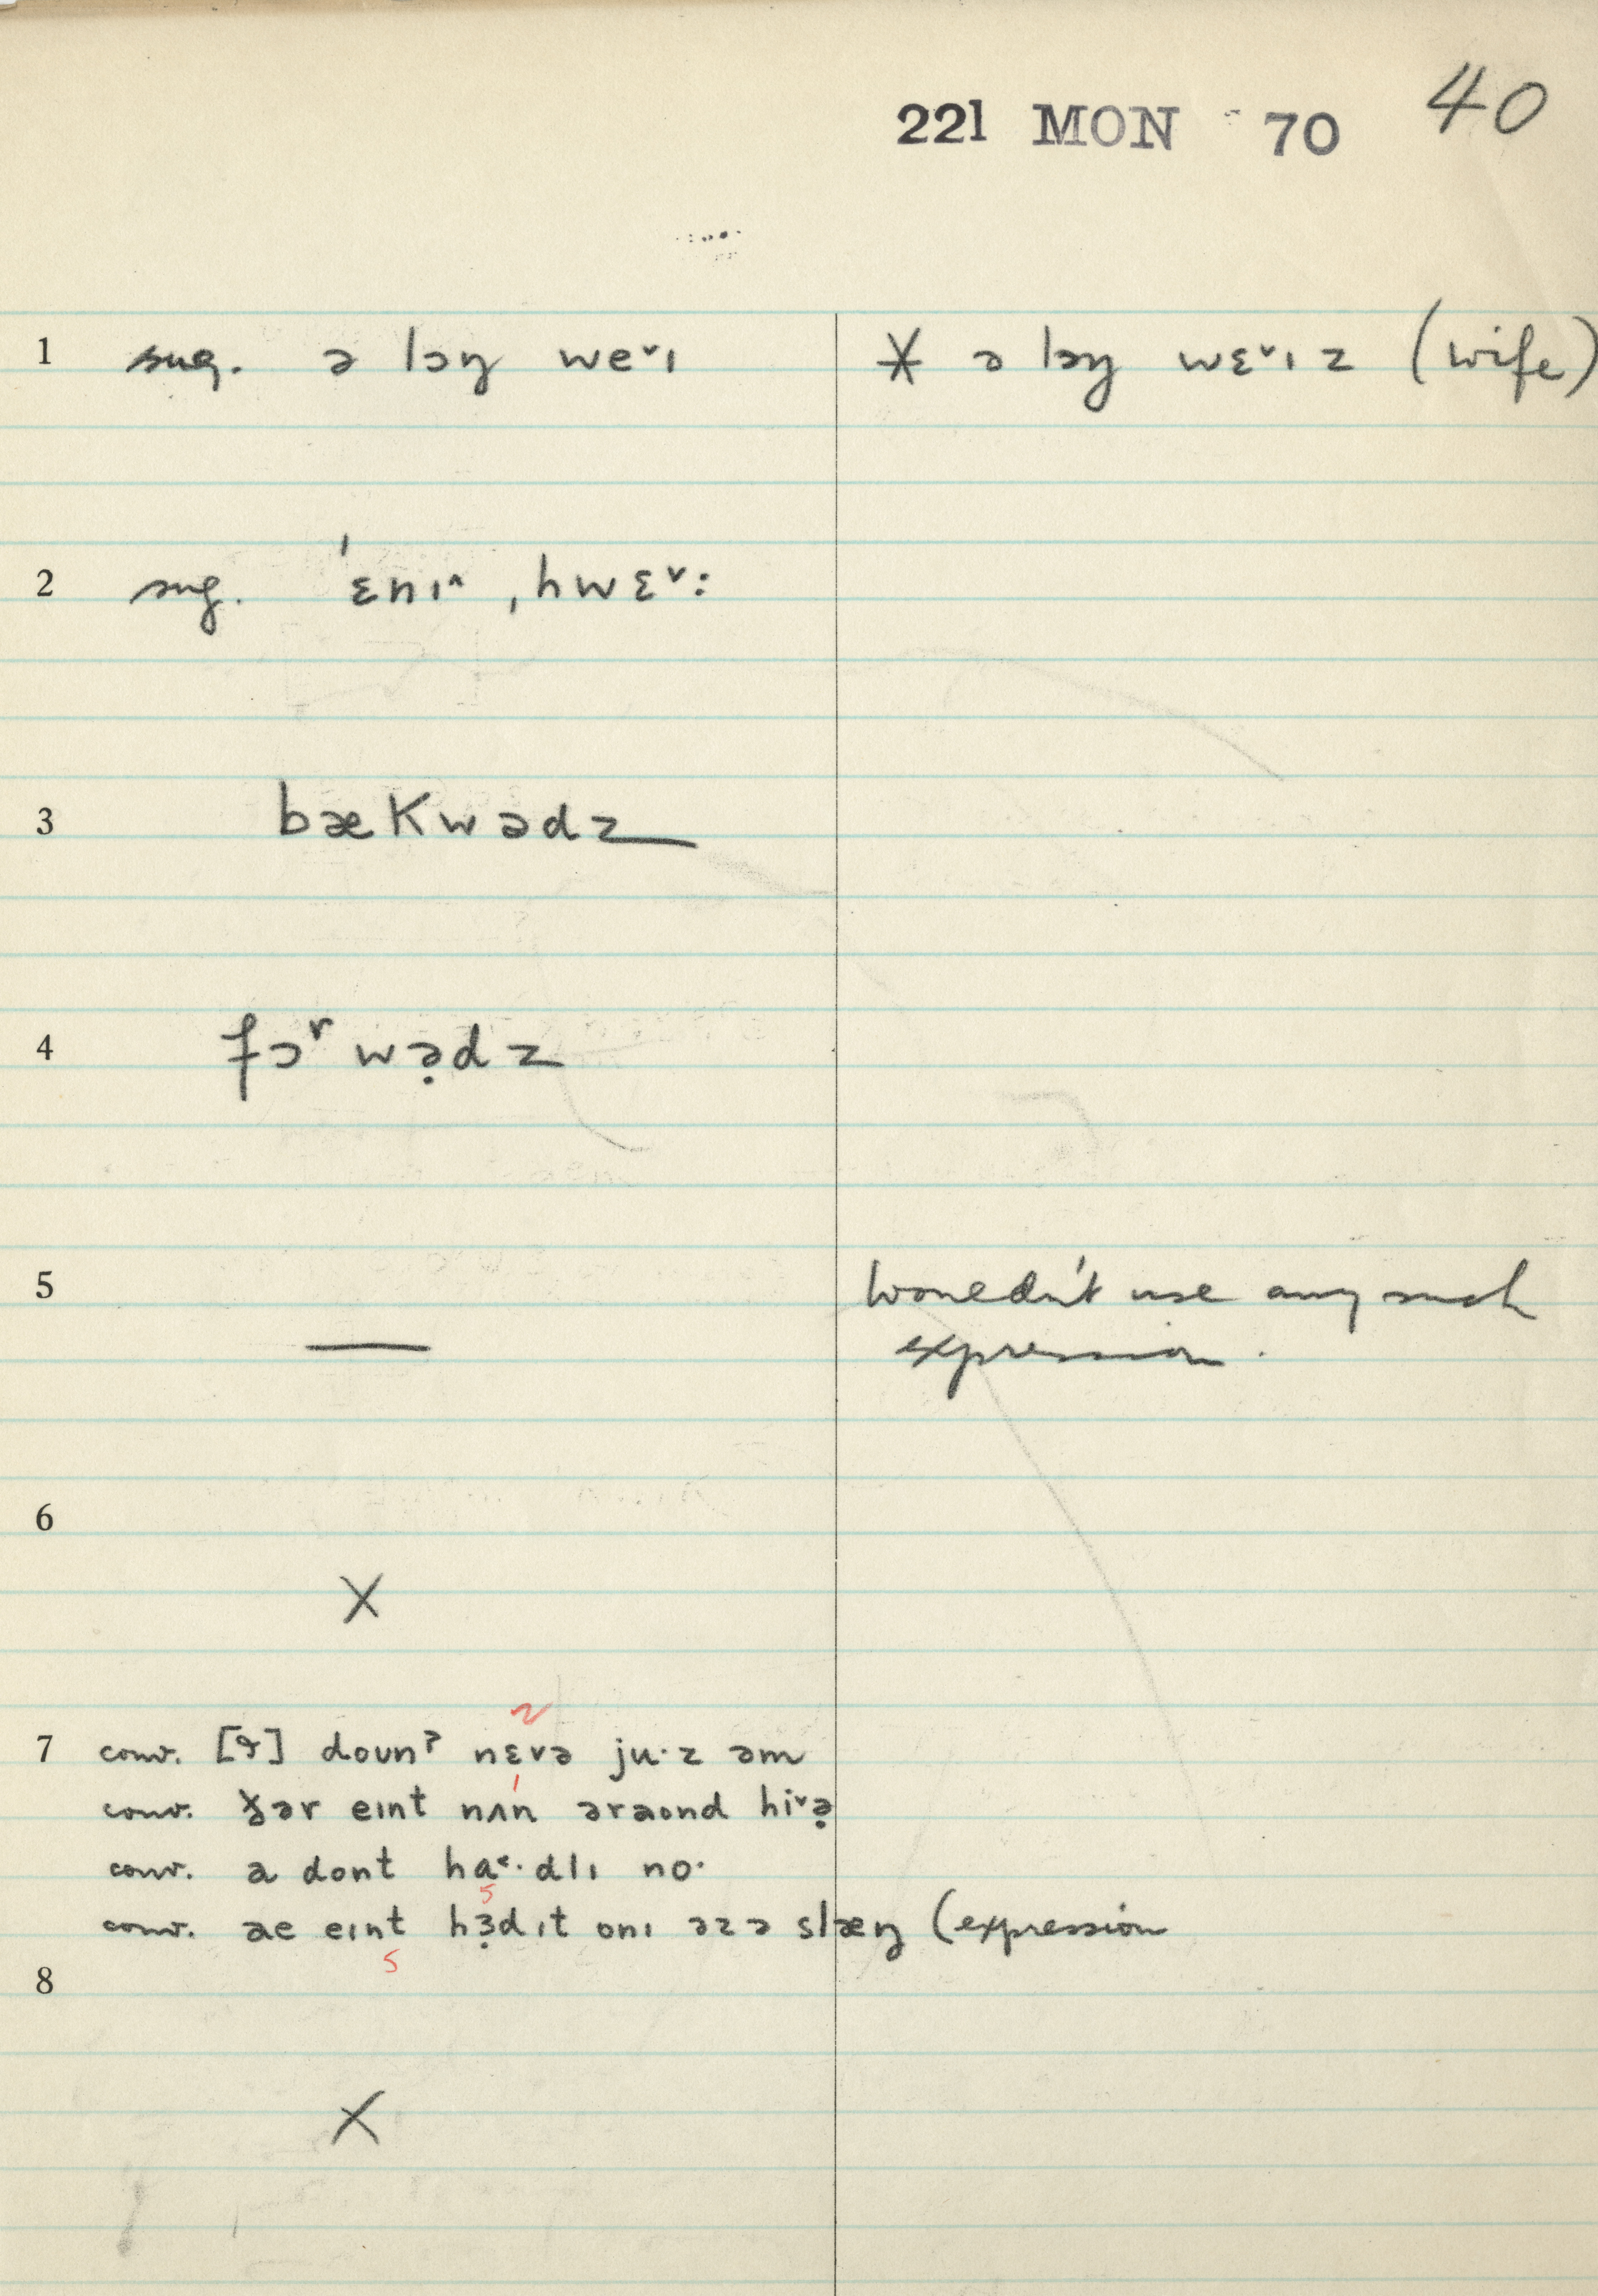 221 MON 70 40
1 sug. ə lɔŋ weˇɪ ⚹ ə lɔŋ wɛˇɪz (wife)
2 sug. ˈɛnɪ^ ˌhwɛˇ:
3 bækwədz
4 fɔʳwə̣dz
5 — Wouldn't use any such
expression.
6
X
2
7 conv. doʊnˀ nɛvə ju·z əm
conv. ðər eɪnt nʌn əraʊnd hiˇə̣
conv. a dont ha˂·dlɪ no·
5
conv. æ eɪnt hɜ̣d ɪt onɪ əzə slæŋ (expression
5
8
X